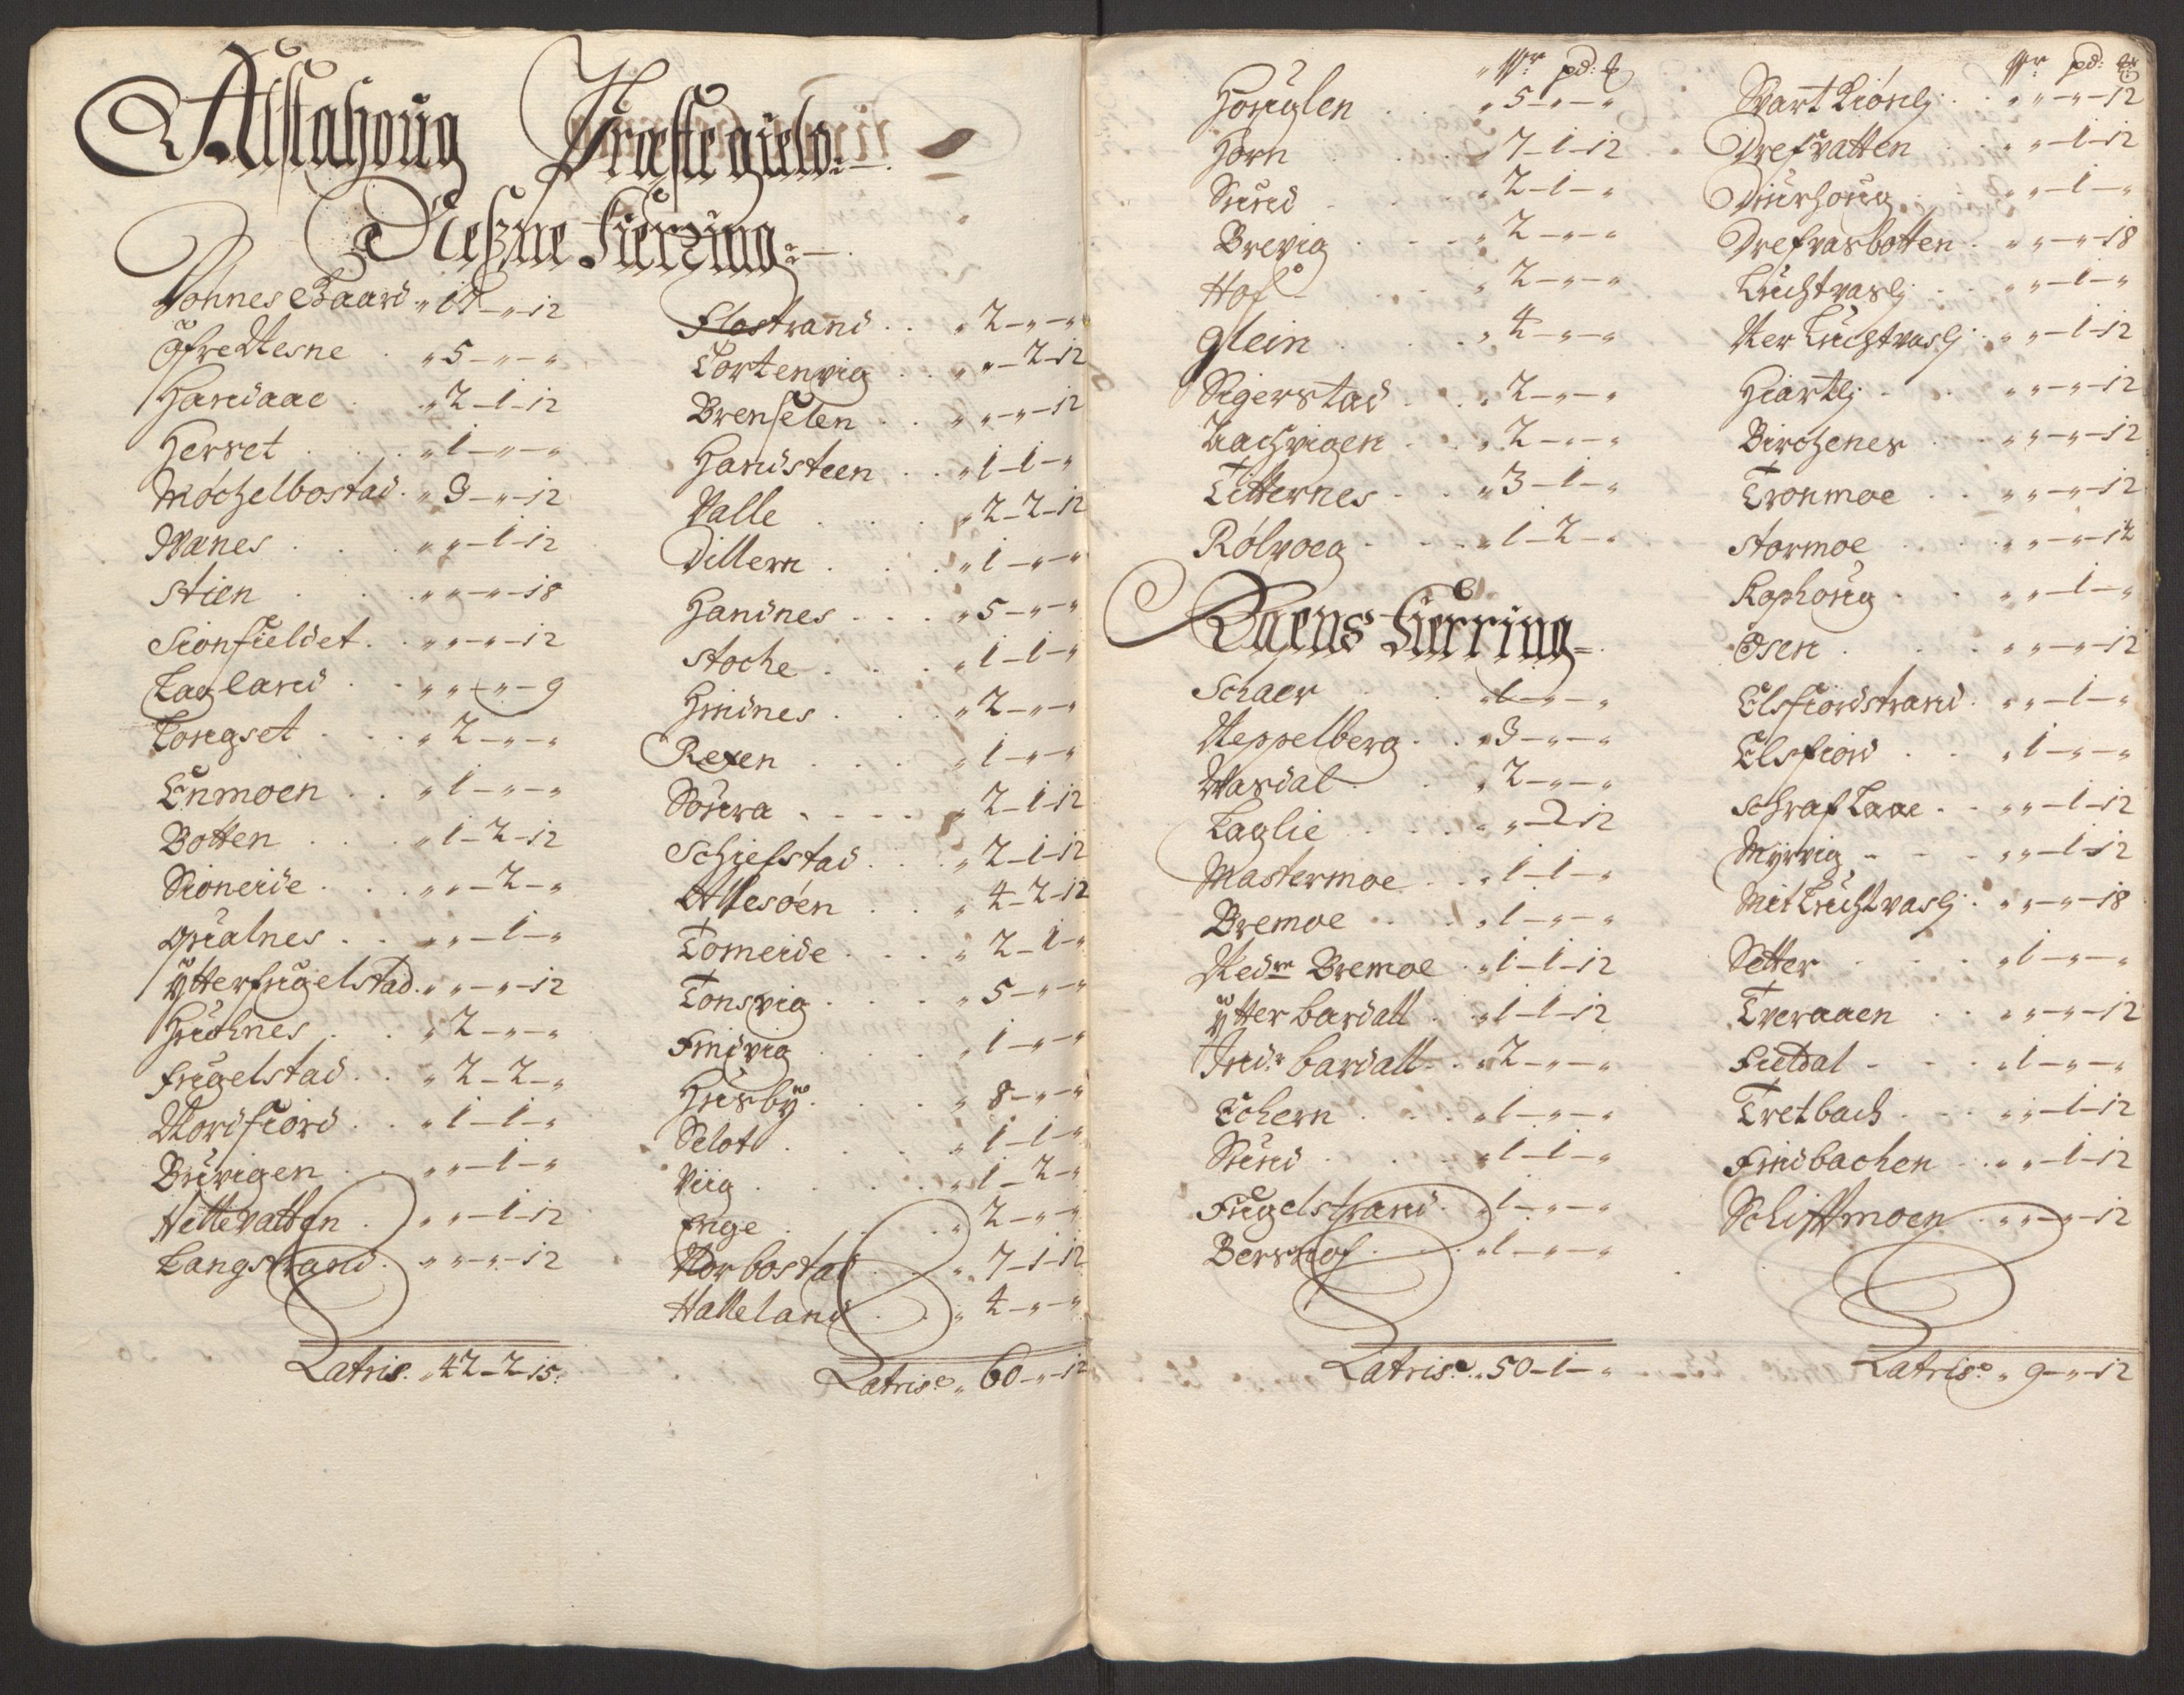 Alstahoug Præstegield
Neßne Fierring
Johnes Gaard „ 17 - „ - 12
Øfre Nesne „ 5 - „ - „
Handaae „ 2 - 1 - 12
Herset „ 1 - „ - „
Møchelbostad „ 3 - „ - 12
Wænes „ „ - 1 - 12
Stien „ „ - „ - 18
Sionfieldet „ „ - „ - 12
Lagland „ „ - „ - 9
Longset „ 2 - „ - „
Enmoen „ 1 - „ - „
Botten „ 1 - 2 - 12
Sioneide „ „ - 2 - „
Qualnes „ „ - 1 - „
Ytterfugelstad „ „ - „ - 12
Huchnes „ 2 - „ - „
Fugelstad „ 2 - 2 - „
Nordfiord „ 1 - 1 - „
Bruvigen „ „ - 1 - „
Nettevatten „ „ - 1 - 12
Langstrand „ „ - „ - 12
Latris. „ 42 - 2 - 15.
Flostrand „ 2 - „ - „
Tortenvig „ „ - 2 - 12
Brenselen „ „ - „ - 12
Handsteen „ 1 - 1 - „
Valle „ 2 - 2 - 12
Dillern „ 1 - „ - „
Handnes „ 5 - „ - „
Stoche „ 1 - 1 - „
Hindnes „ 2 - „ - „
Rexen „ 1 - „ - „
Soura „ 2 - 1 - 12
Schiefstad „ 2 - 1 - 12
Allesøen „ 4 - 2 - 12
Tomeide „ 2 - 1 - „
Tonsvig „ 5 - „ - „
Findvig „ 1 - „ - „
Husby „ 8 - „ - „
Selot „ 1 - 1 - „
Viig „ 1 - 2 - „
Enge „ 2 - „ - „
Norbostad „ 7 - 1 - 12
Halleland „ 4 - „ - „
Latris „ 60 - „ - 12
pd:
Houglen „ 5 - „ - „
Horn „ 7 - 1 - 12
Sund „ 2 - 1 - „
Brevig „ 2 - „ - „
Hof „ 2 - „ - „
Glein „ 4 - „ - „
Sigerstad „ 2 - „ - „
Aachvigen „ 2 - „ - „
Titternes „ 3 - 1 - „
Rølvoeg „ 1 - 2 - „
Raens Fierring
Schaer „ 1 - „ - „
Neppelberg „ 3 - „ - „
Wasdal „ 2 - „ - „
Laglie „ „ - 2 12
Mastermoe „ 1 - 1 - „
Bremoe „ 1 - „ - „
Nedre Bremoe „ 1 - 1 - 12
Ytter bardall „ 1 - 1 - 12
Indr bardall „ 2 - „ - „
Echern „ 1 - „ - „
Sund „ 1 - 1 - „
Fugelstrand „ 1 - „ - „
Bersnof „ 1 - „ - „
Latris „ 50 - 1 - „
pd:
Svart Liønlj „ „ - „ - 12
Drefvatten „ „ - 1 - 12
Diurhoug „ „ - 1 - „
Drefvasbotten „ „ - „ - 18
Luchtvaslj „ „ - 1 - „
Ner Luchtvaslj „ „ - 1 - 12
Hiartlj „ „ - „ - 12
Birchenes „ „ - „ - 12
Tronmoe „ „ - „ - 12
Stormoe „ „ - „ - 12
Kaphoug „ „ - 1 - „
Osen „ „ - „ - 12
Elsfiordstrand „ „ - 1 - „
Elsfiord „ 1 - „ - „
Schraflaae „ „ - 1 - 12
Myrvig „ „ - 1 - 12
Mit Luchtvaslj „ „ - „ - 18
Setter „ 1 - „ - „
Tveraaen „ „ - „ - 12
Fieldal „ 1 - „ - „
Tretbach „ „ - 1 - 12
Findbachen „ „ - 1 - 12
Schifftmoen „ „ - „ - 12
Latris „ 9 - „ - 12